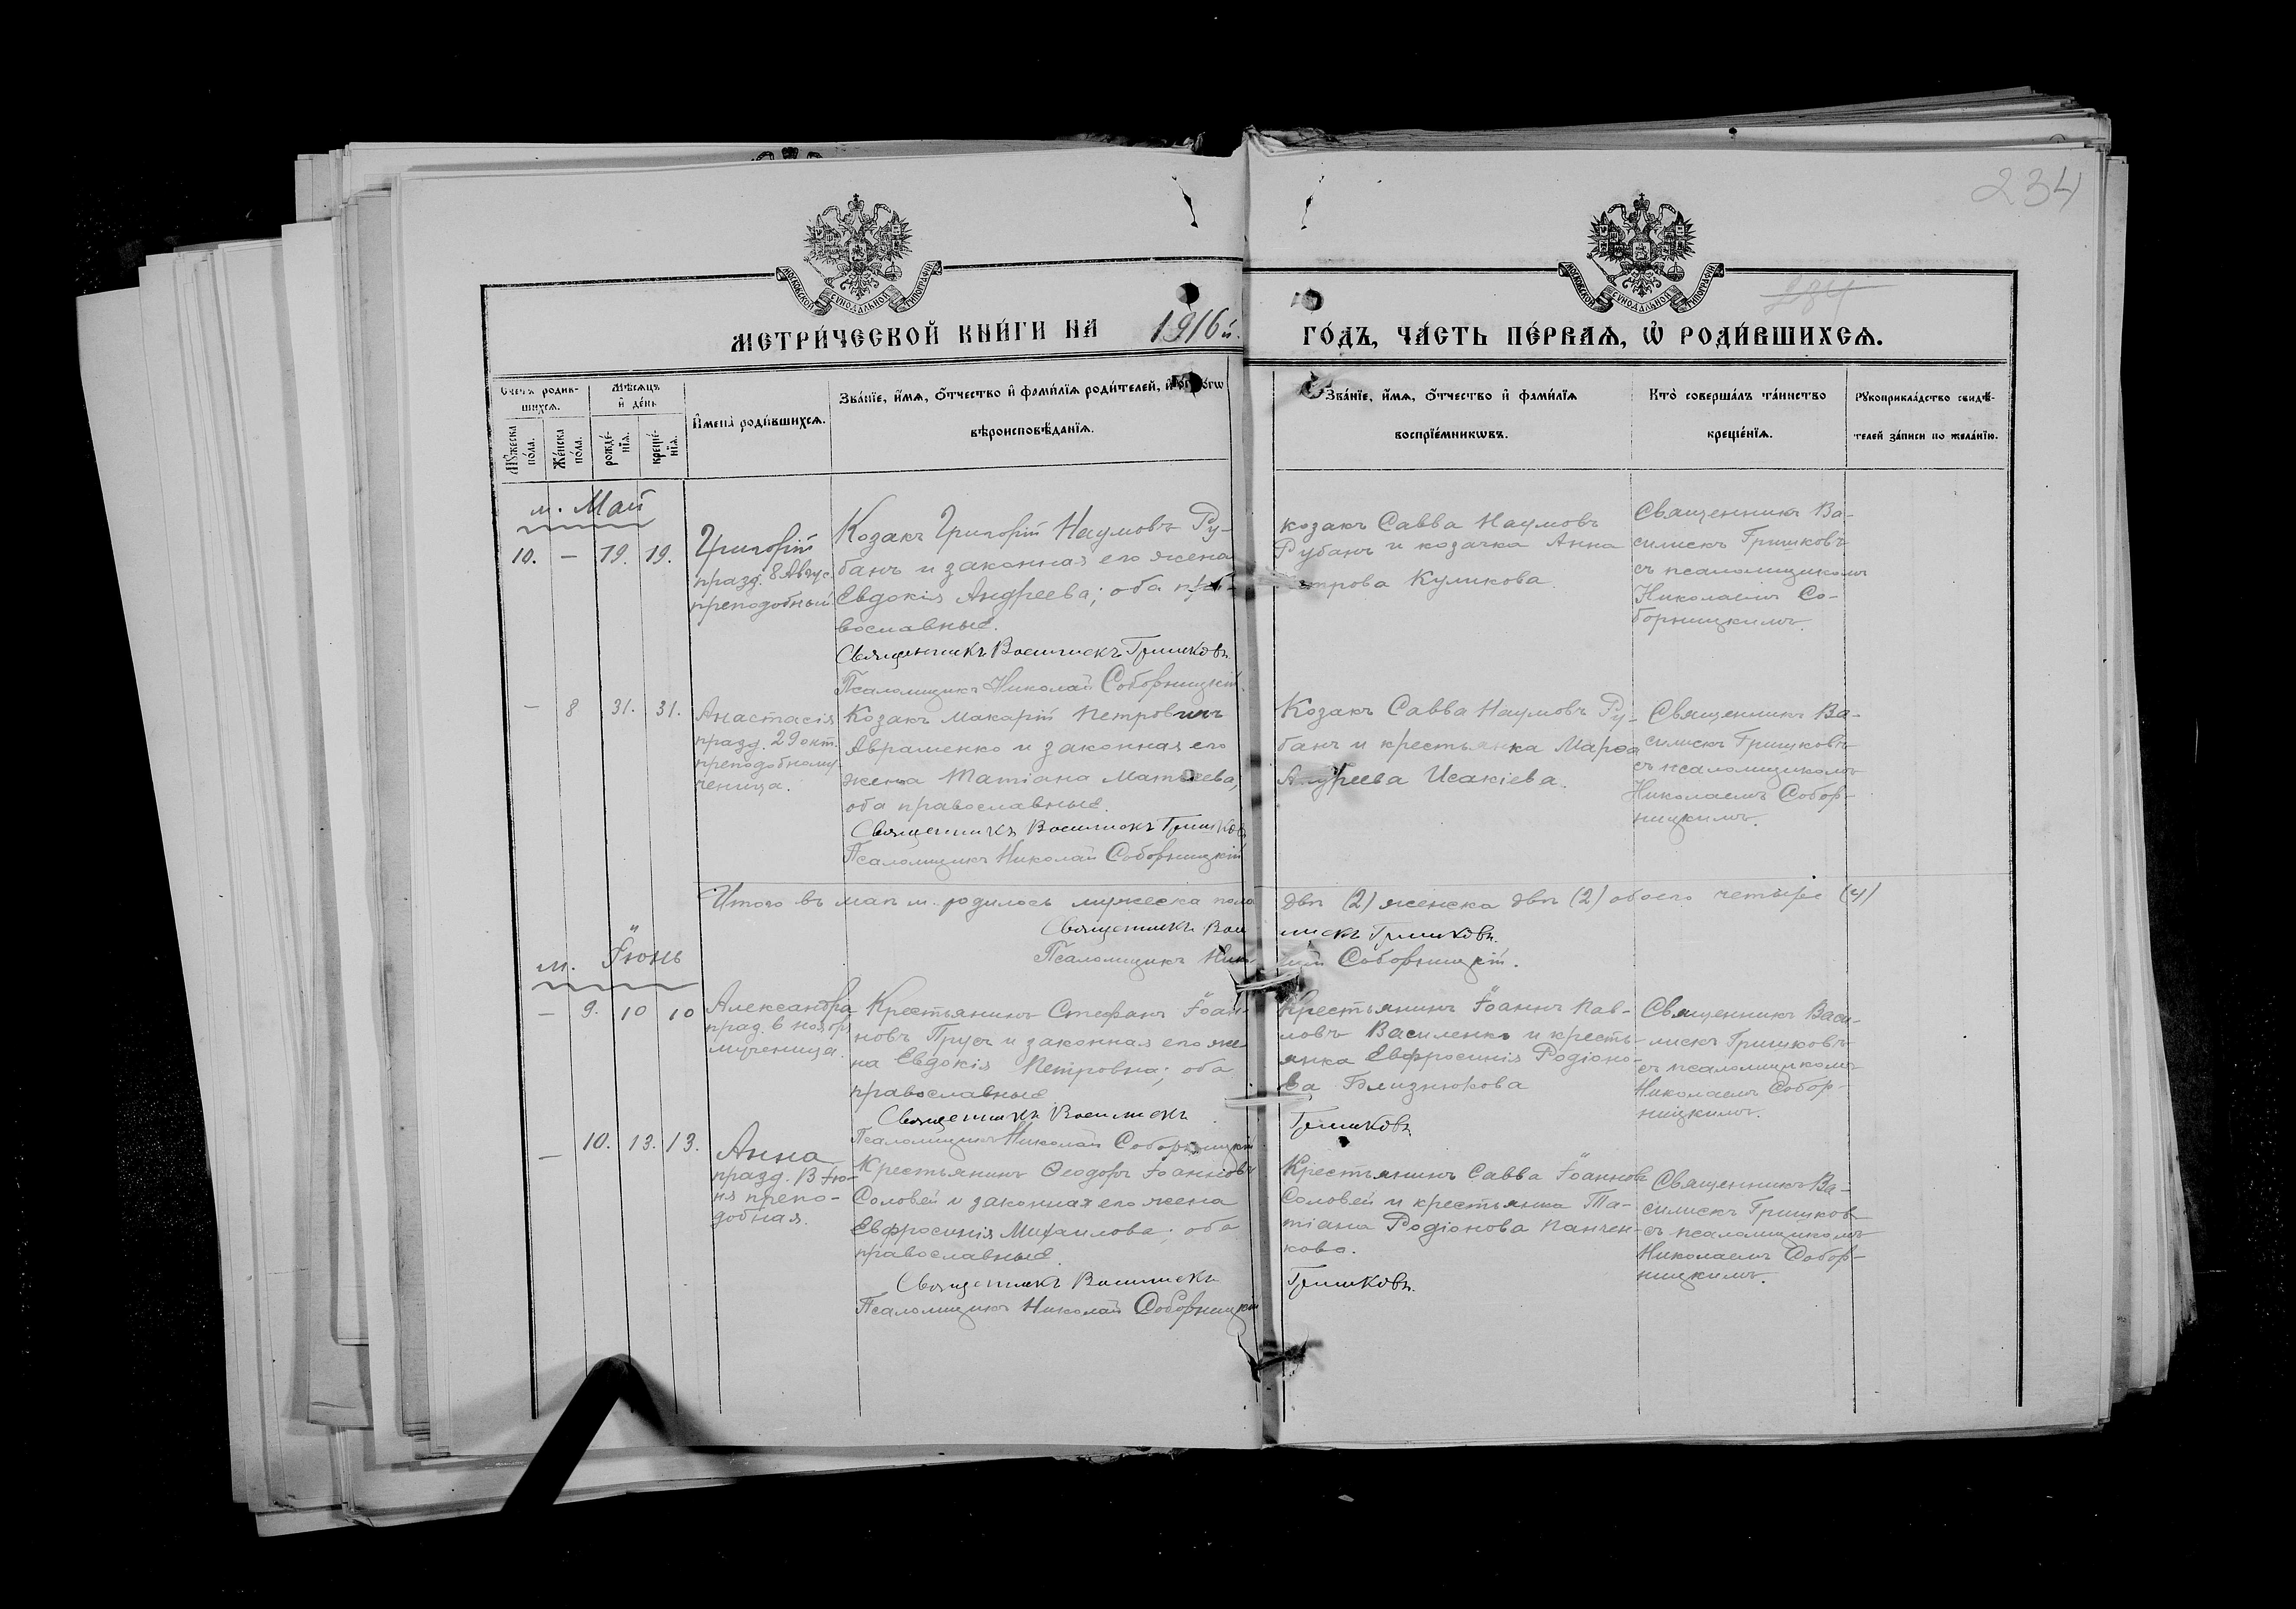 234
МОСКОВСКОЙ СѴНОДАЛЬНОЙ ТИПОГРАФІИ
МОСКОВСКОЙ СѴНОДАЛЬНОЙ ТИПОГРАФІИ
284
МЕТРИ́ЧЕСКОЙ КНИ́ГИ НА 1916й. ГО́ДЪ, ЧА́СТЬ ПЕ́РВАѦ, Ѡ҆ РОДИ́ВШИХСѦ.
Счетъ родив-
шихсѧ.
Мꙋжеска по́ла.
Же́нска по́ла.
Мѣ́сѧцъ
и҆ де́нь
рожде́-
нїѧ.
креще́-
нїѧ.
И҆мена̀ роди́вшихсѧ.
Зва́нїе, и҆́мѧ, ѻ҆́тчество и҆ фами́лїѧ роди́телей, и҆
вѣроисповѣ́данїѧ.
Зва́нїе, и҆́мѧ, ѻ҆́тчество и҆ фами́лїѧ
воспрїе́мникѡвъ.
Кто̀ соверша́лъ та́инство
креще́нїѧ.
Рꙋкоприкла́дство свидѣ́-
телей за́писи по жела́нїю.
м. Май
10. — 19. 19.
Григорій
празд. 8 Авгус.
преподобный
Козакъ Григорій Наумовъ Ру-
банъ и законная его жена
Евдокія Андреева; оба пра-
вославные.
Священникъ Василискъ Гришковъ.
Псаломщикъ Николай Соборницкій.
козакъ Савва Наумовъ
Рубанъ и козачка Анна
Петрова Куликова.
Священникъ Ва-
силискъ Гришковъ
съ псаломщикомъ
Николаемъ Со-
борницкимъ.
— 8 31. 31.
Анастасія
празд. 29 окт.
преподобному-
ченица.
Козакъ Макарій Петровичъ
Авраменко и законная его
жена Татіана Матвеева,
оба православные.
Священникъ Василискъ Гришковъ
Псаломщикъ Николай Соборницкій
Козакъ Савва Наумовъ Ру-
банъ и крестьянка Марѳа
Андреева Исакіева.
Священникъ Ва-
силискъ Гришковъ
съ псаломщикомъ
Николаемъ Собор-
ницкимъ.
Итого въ маѣ м. родилось мужеска пола двѣ (2) женска двѣ (2) обоего четыре (4)
Священникъ Василискъ Гришковъ.
Псаломщикъ Николай Соборницкій.
м. Іюнь
— 9. 10 10
Александра
празд. 6 ноябр.
мученица.
Крестьянинъ Стефанъ Іоан-
новъ Прусъ и законная его же-
на Евдокія Петровна; оба
православные.
Священникъ Василискъ Гришковъ.
Псаломщикъ Николай Соборницкій
Крестьянинъ Іоаннъ Пав-
ловъ Василенко и кресть-
янка Евфросинія Родіоно-
ва Близнюкова
Священникъ Васи-
лискъ Гришковъ
съ псаломщикомъ
Николаемъ Собор-
ницкимъ.
— 10. 13. 13.
Анна
празд. 13 Ію-
ня препо-
добная.
Крестьянинъ Ѳеодоръ Іоанновъ
Соловей и законная его жена
Евфросинія Михаилова; оба
православные.
Священникъ Василискъ Гришковъ.
Псаломщикъ Николай Соборницкій
Крестьянинъ Савва Іоанновъ
Соловей и крестьянка Та-
тіана Родіонова Панчен-
кова.
Священникъ Ва-
силискъ Гришков
съ псаломщикомъ
Николаемъ Собор-
ницкимъ.